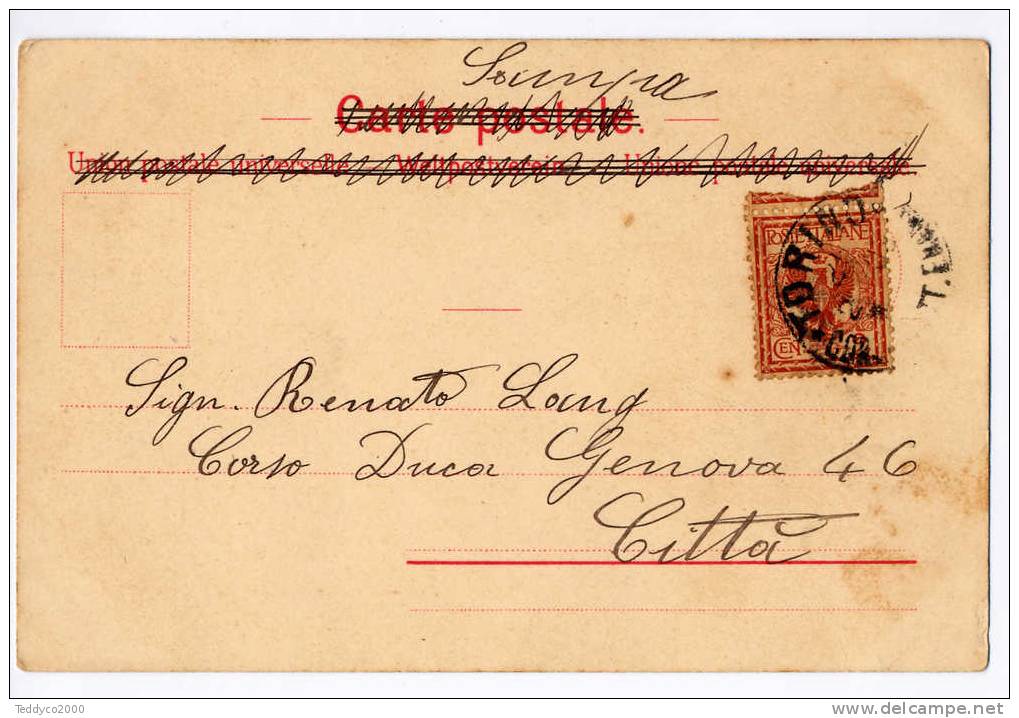 Stampa
Carte postale.
Union postale universelle Weltpostverein Unione postale universale
POSTE ITALIANE
TORINO
CENT
Sign. Renato Lang
Corso Duca Genova 46
Città
Teddyco2000
delcampe.net